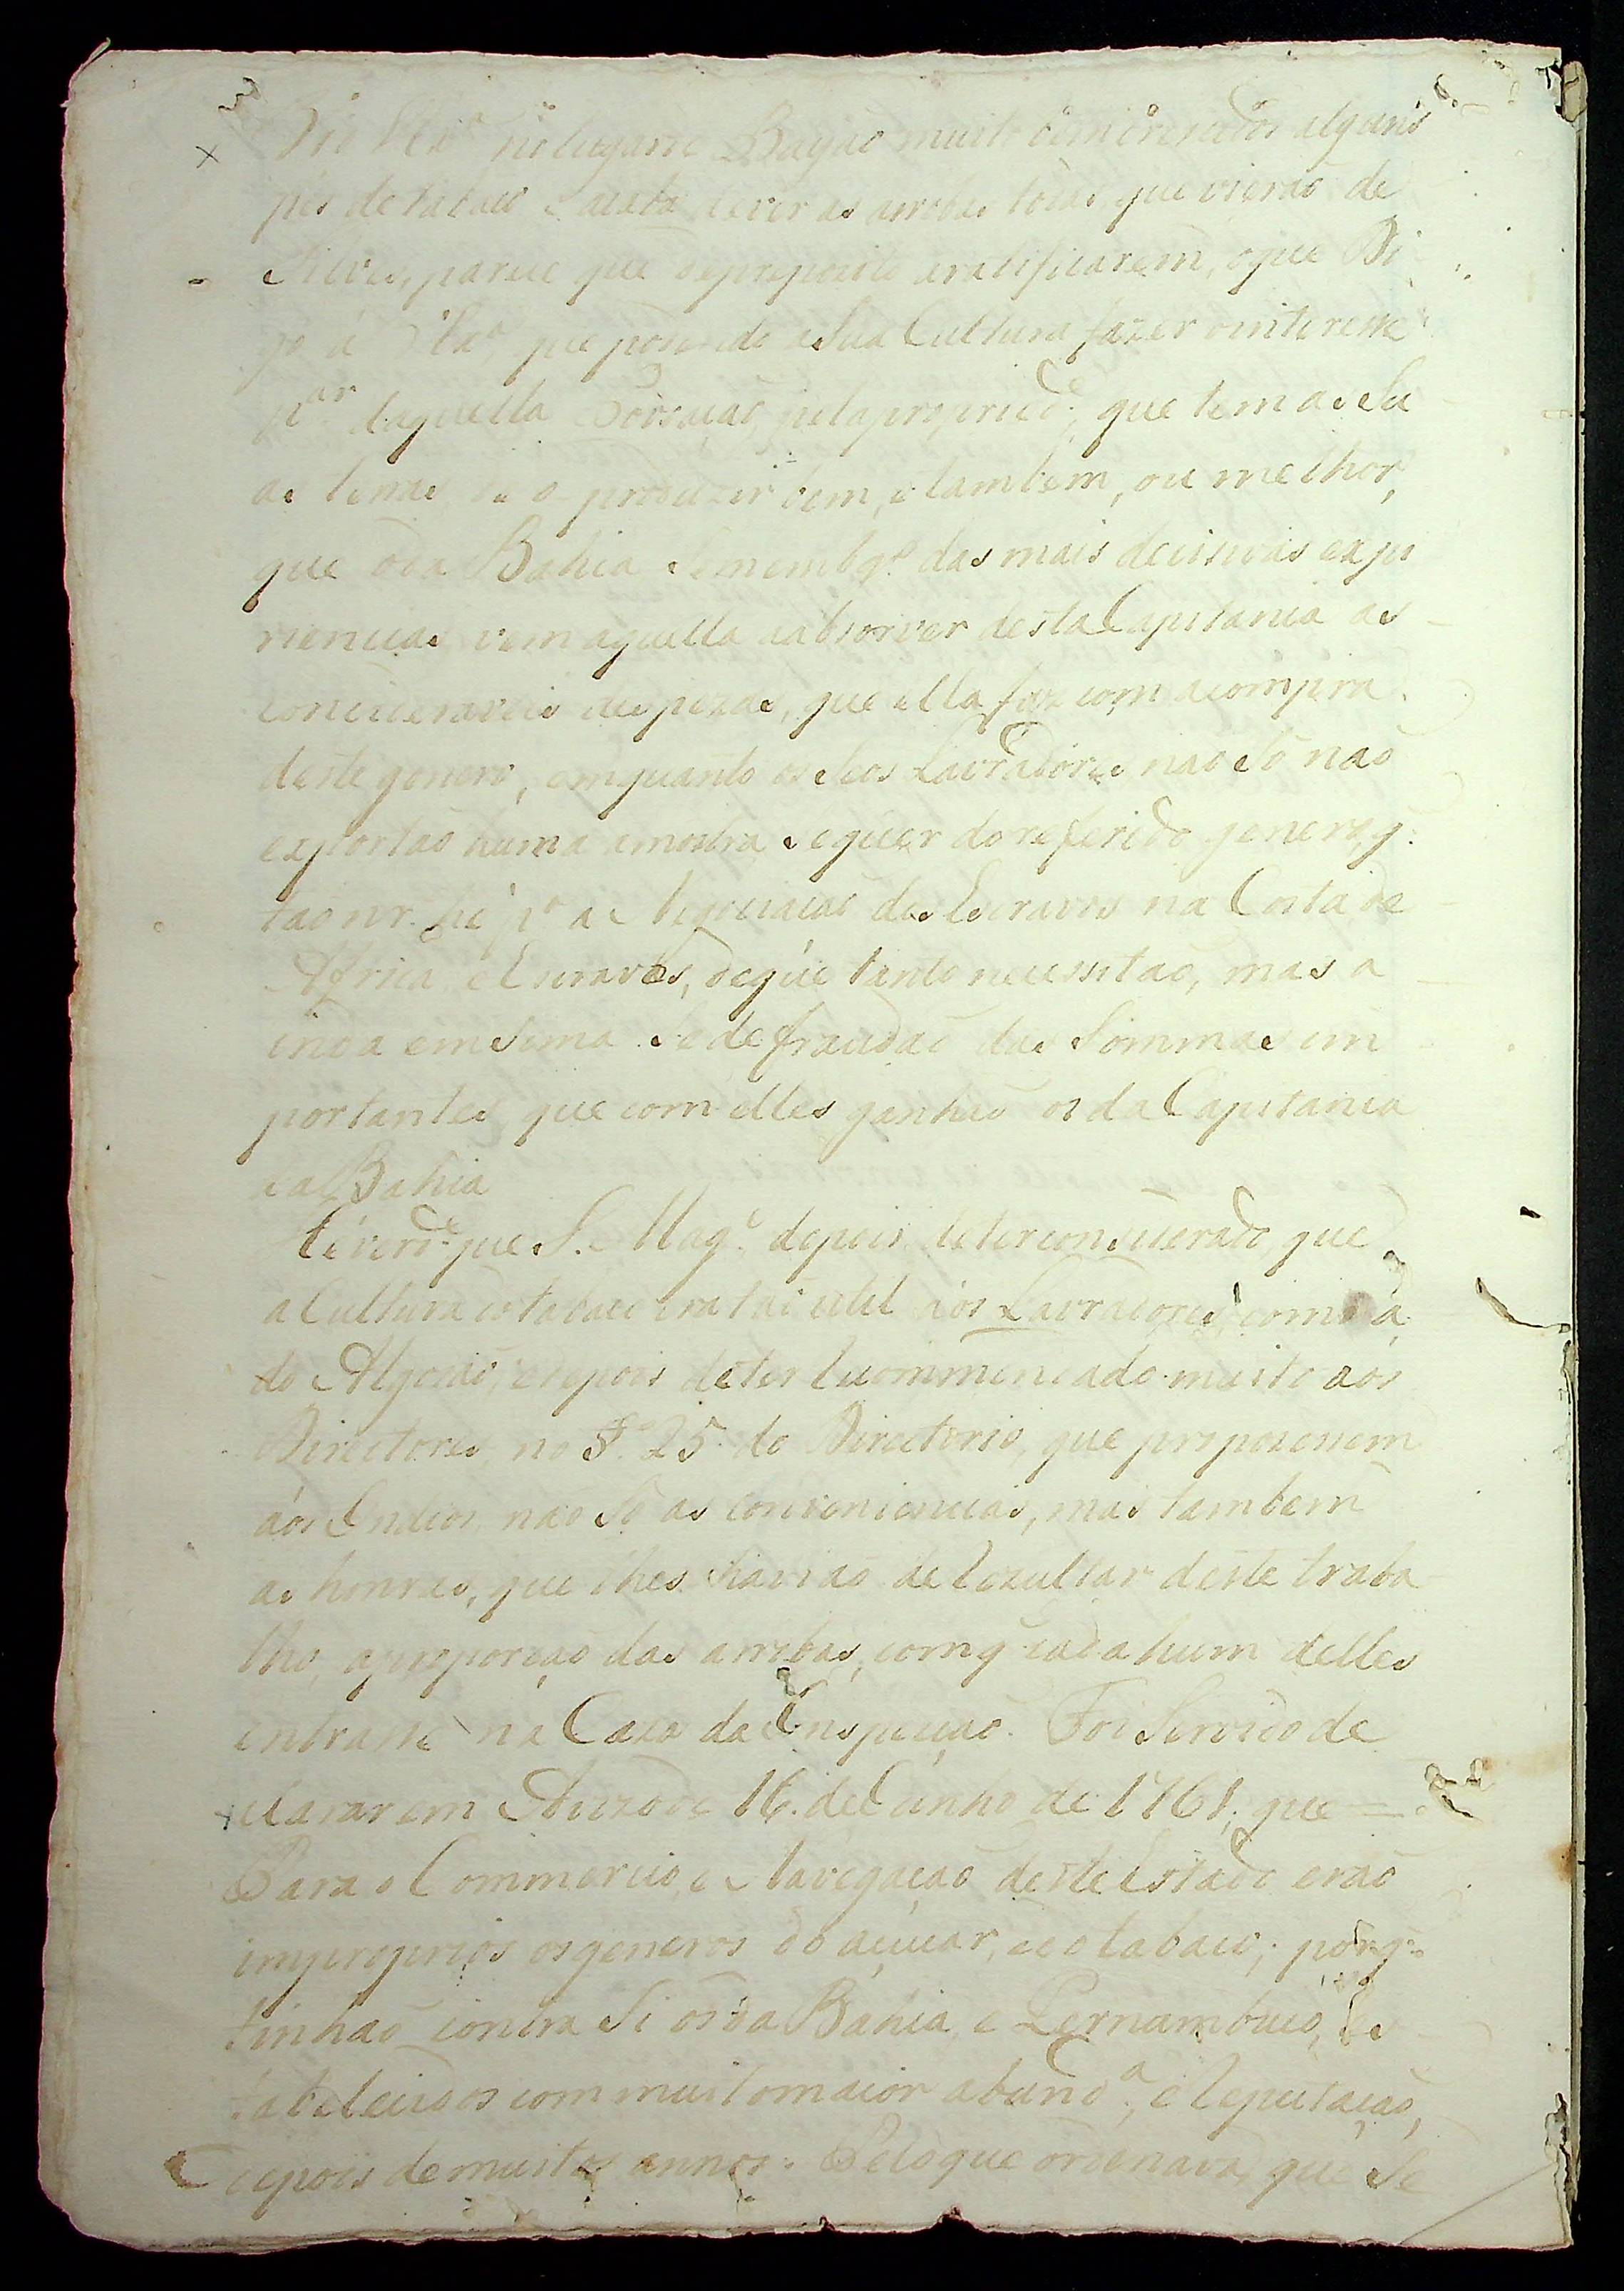 V. Ex.ª no lugar de Bayaõ muito bem creados alguns
pés de tabaco e a vista de ver as arrobas todas, que vieraõ de
Silves, parece que a proposito eratificarem, o que Di
go á V. Ex.ª, que pode do a Sua Cultura fazer o interesse
p.ar daquella Povoaçaõ, pela propried.e, que tem as Su
as terras de o produzir bem, e tambem, ou melhor,
que o da Bahia. Sem emb.go das mais decisivas expe
riencias vem aquella a absorver desta Capitania as
concideraveis despezas, que ella faz com a compra
deste genero, emquanto os Seos Lavradores naõ Só naõ
exportaõ huma amostra Sequer do referido genero, q.
taõ nr. he p.ª a Negociaçaõ dos Escravos na Costa de
Africa, e Escravos, de que tanto necessitaõ, mas a
inda em sima Se defraudaõ das Sommas im
portantes, que com elles ganhaõ os da Capitania
da Bahia
He verd.e que S. Mag.e depois de ter conciderado, que
a Cultura do tabaco era taõ util aos Lavradores, como a
do Algodaõ, e depois de ter Recommendado muito aos
Directores no §.º 25 do Directorio, que propozessem
aos Indios, naõ Só as conveniencias, mas tambem
as honras, que lhes haviaõ de Rezultar deste traba
lho, a proporçaõ das arrobas, com q cada hum delles
entrasse na Caza da Inspecçaõ. Foi Servido de
clarar em Avizo de 16. de Junho de 1761, que =
Para o Commercio, e Navegaçaõ deste Estado eraõ
improprios os generos do açucar, e do tabaco; porq.
tinhaõ contra Si os da Bahia, e Pernambuco, Es
tabelecidos com muito maior abund.ª, e Reputaçaõ,
depois de muitos annos. Pelo que ordenava, que Se